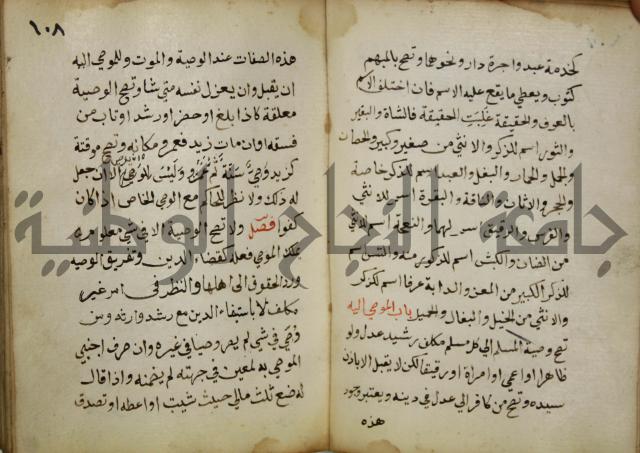 كخدمة عبد واجرة دار ونحوها وتصح بالمبهم
كثوب ويعطي ما يقع عليه الاسم فان اختلف الاسم
بالعرف والحقيقة غلبت الحقيقة فالشاة والبعير
والثور اسم للذكر والانثي من صغير وكبير والحصان
والجمل والحمار والبغل والعبد اسم للذكر خاصة
والحجر والاتان والناقة والبقرة اسم للانثي
والفرس والرقيق اسم لهما والنعجة اسم للانثي
من الضان والكبش اسم للذكر منه والتيس اسم
للذكر الكبير من المعز والدابة عرفا اسم للذكر
والانثي من الخيل والبغال والحمير باب الموصي اليه
تصح وصية المسلم الي كل مسلم مكلف رشيد عدل ولو
ظاهرا او اعمي او امراة او رقيقا لكن لا يقبل الا باذن
سيده وتصح من كافر الي عدل في دينه ويعتبر وجود
هذه
١٠٨
هذه الصفات عند الوصية والموت وللموصي اليه
ان يقبل وان يعزل نفسه متي شا وتصح الوصية
معلقة كاذا بلغ او حضر او رشد او تاب من
فسقه او ان مات زيد فعمرو مكانه وتصح موقتة
كزيد وصي سنة ثم عمرو وليس للوصي ان يوصي الا ان جعل
له ذلك ولا نظر للحاكم مع الوصي الخاص اذا كان
كفوا فصل ولا تصح الوصية الا في شي معلوم
يملك الموصي فعله كقضاء الدين وتفريق الوصية
ورد الحقوق الي اهلها والنظر في امر غير
مكلف لا باستيفاء الدين مع رشد وارثه ومن
وصي في شي لم يصر وصيا في غيره وان صرف اجنبي
الموصي به لمعين في جهته لم يضمنه واذا قال
له ضع ثلث مالي حيث شيت او اعطه او تصدق
جامعة النجاح الوطنية